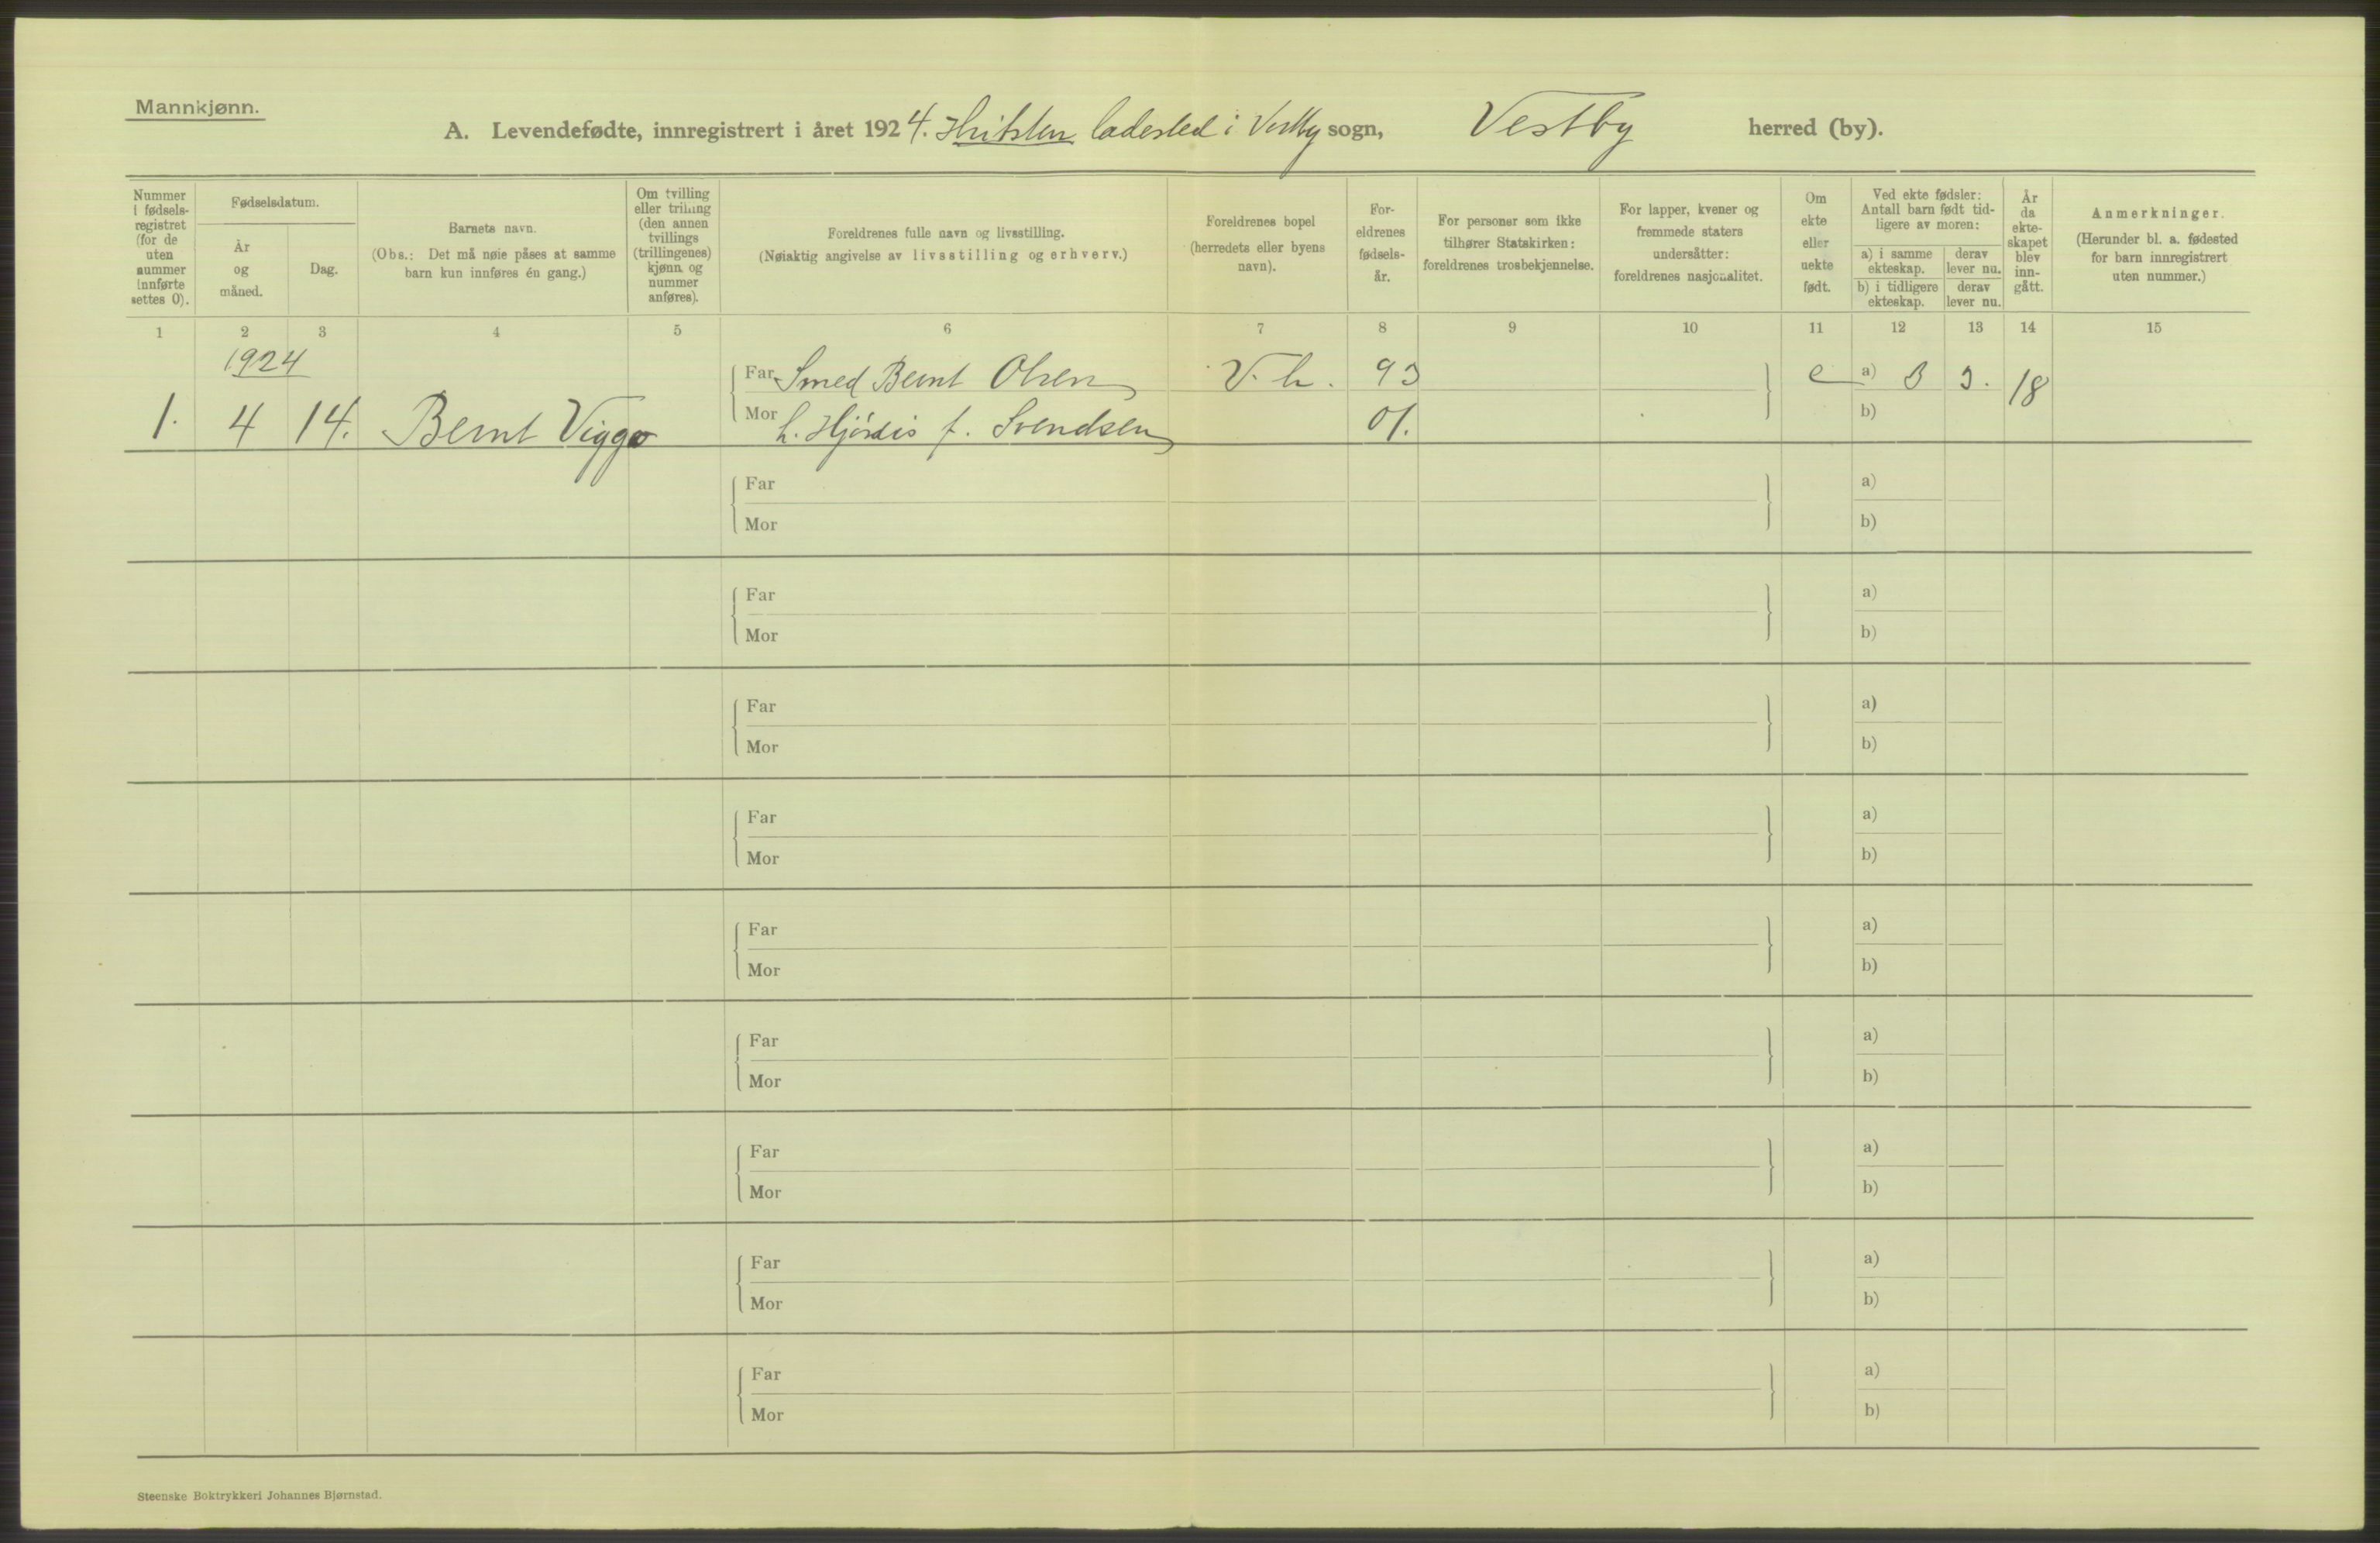 Mannkjønn.
A. Levendefødte, innregistrert i året 1924. Hvitsten ladested i Vestby sogn, Vestby herred (by).
Nummer i fødsels-registret (for de uten nummer innførte settes 0).
Fødselsdatum.
År og måned.
Dag.
Barnets navn.
(Obs.: Det må nøie påses at samme barn kun innføres én gang.)
Om tvilling eller trilling (den annen tvillings (trillingenes) kjønn og nummer anføres).
Foreldrenes fulle navn og livsstilling.
(Nøiaktig angivelse av livsstilling og erhverv.)
Foreldrenes bopel (herredets eller byens navn).
For-eldrenes fødsels-år.
For personer som ikke tilhører Statskirken: foreldrenes trosbekjennelse.
For lapper, kvener og fremmede staters undersåtter: foreldrenes nasjonalitet.
Om ekte eller uekte født.
Ved ekte fødsler: Antall barn født tid-ligere av moren:
a) i samme ekteskap.
derav lever nu.
b) i tidligere ekteskap.
derav lever nu.
År da ekte-skapet blev inn-gått.
Anmerkninger.
(Herunder bl. a. fødested for barn innregistrert uten nummer.)
1 2 3 4 5 6 7 8 9 10 11 12 13 14 15
1924
Far Smed Bernt Olsen V. h. 93 e a) 3 3. 18
1. 4 14. Bernt Viggo Mor h. Hjördis f. Svendsen 01. b)
Far a)
Mor b)
Far a)
Mor b)
Far a)
Mor b)
Far a)
Mor b)
Far a)
Mor b)
Far a)
Mor b)
Far a)
Mor b)
Far a)
Mor b)
Far a)
Mor b)
Steenske Boktrykkeri Johannes Bjørnstad.